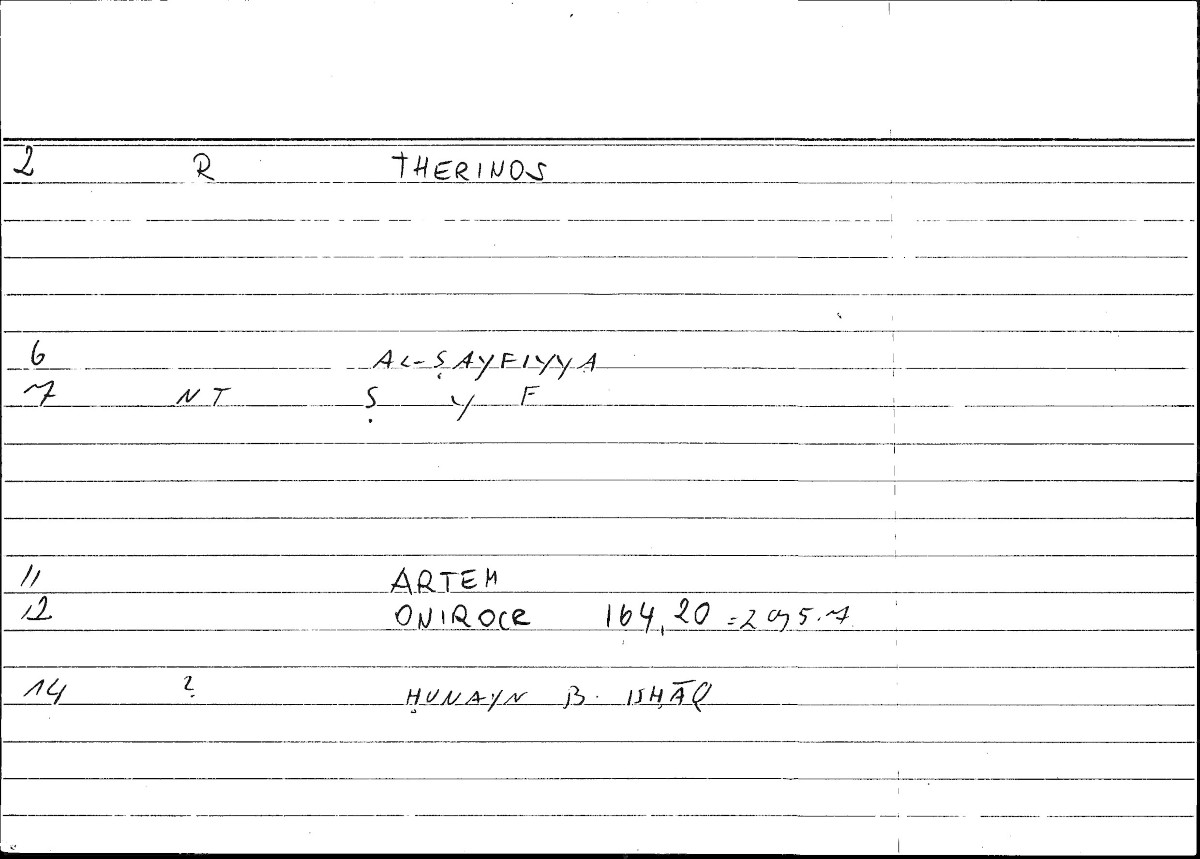 2 R THERINOS
6 AL-ṢAYFIYYA
7 NT Ṣ Y F
11 ARTEM
12 ONIROCR 164,20
14 ? ḤUNAYN B. ISḤĀQ